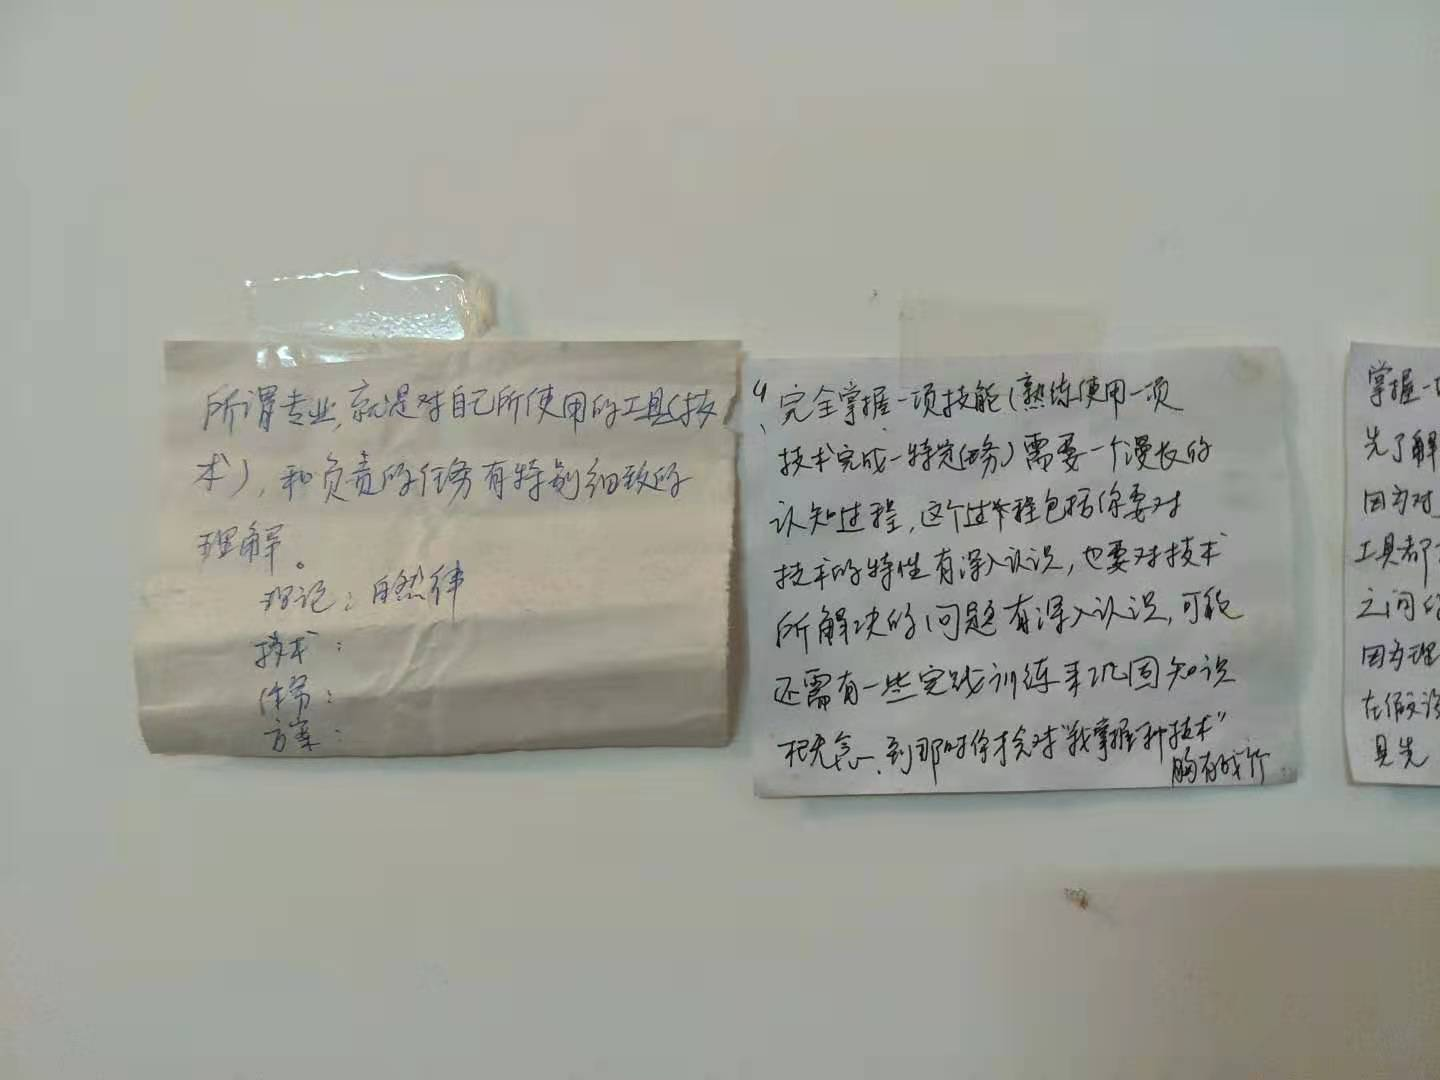 所谓专业,就是对自己所使用的工具(技
术),和负责的任务有特别细致的
理解。
理论:自然律
技术:
任务:
方案:
4、完全掌握一项技能(熟练使用一项
技术完成一特定任务)需要一个漫长的
认知过程,这个过程包括你要对
技术的特性有深入认识,也要对技术
所解决的问题有深入认识,可能
还需有一些实践训练来巩固知识
概念、到那时你才会对"我掌握一种技术"
胸有成竹
掌握一
先了解
因为对
工具都
之间的
因为理
在假设
具先